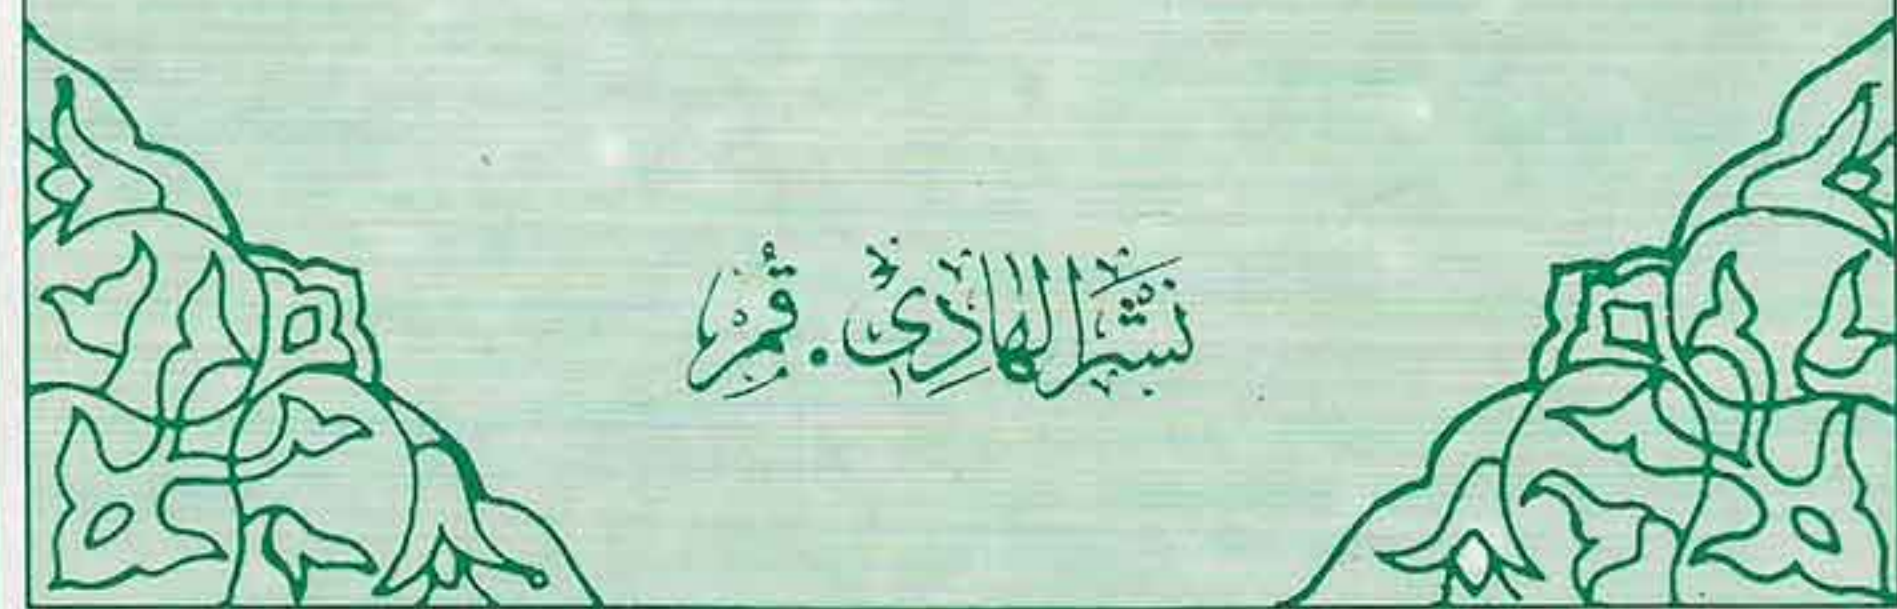 نشر الهادی . قم